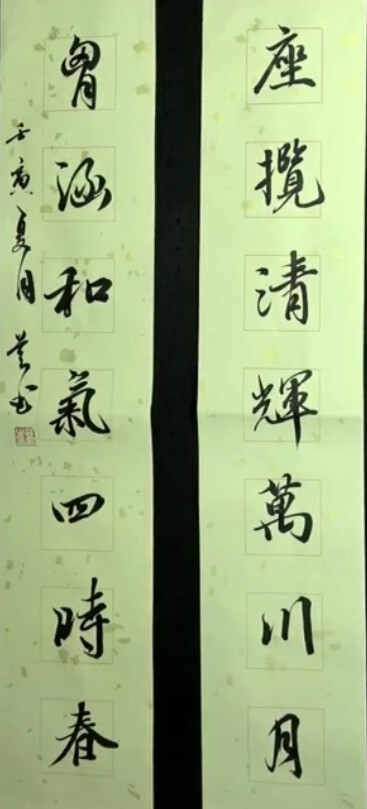 座攬清輝萬川月
胷涵和氣四時春
壬寅夏月
书